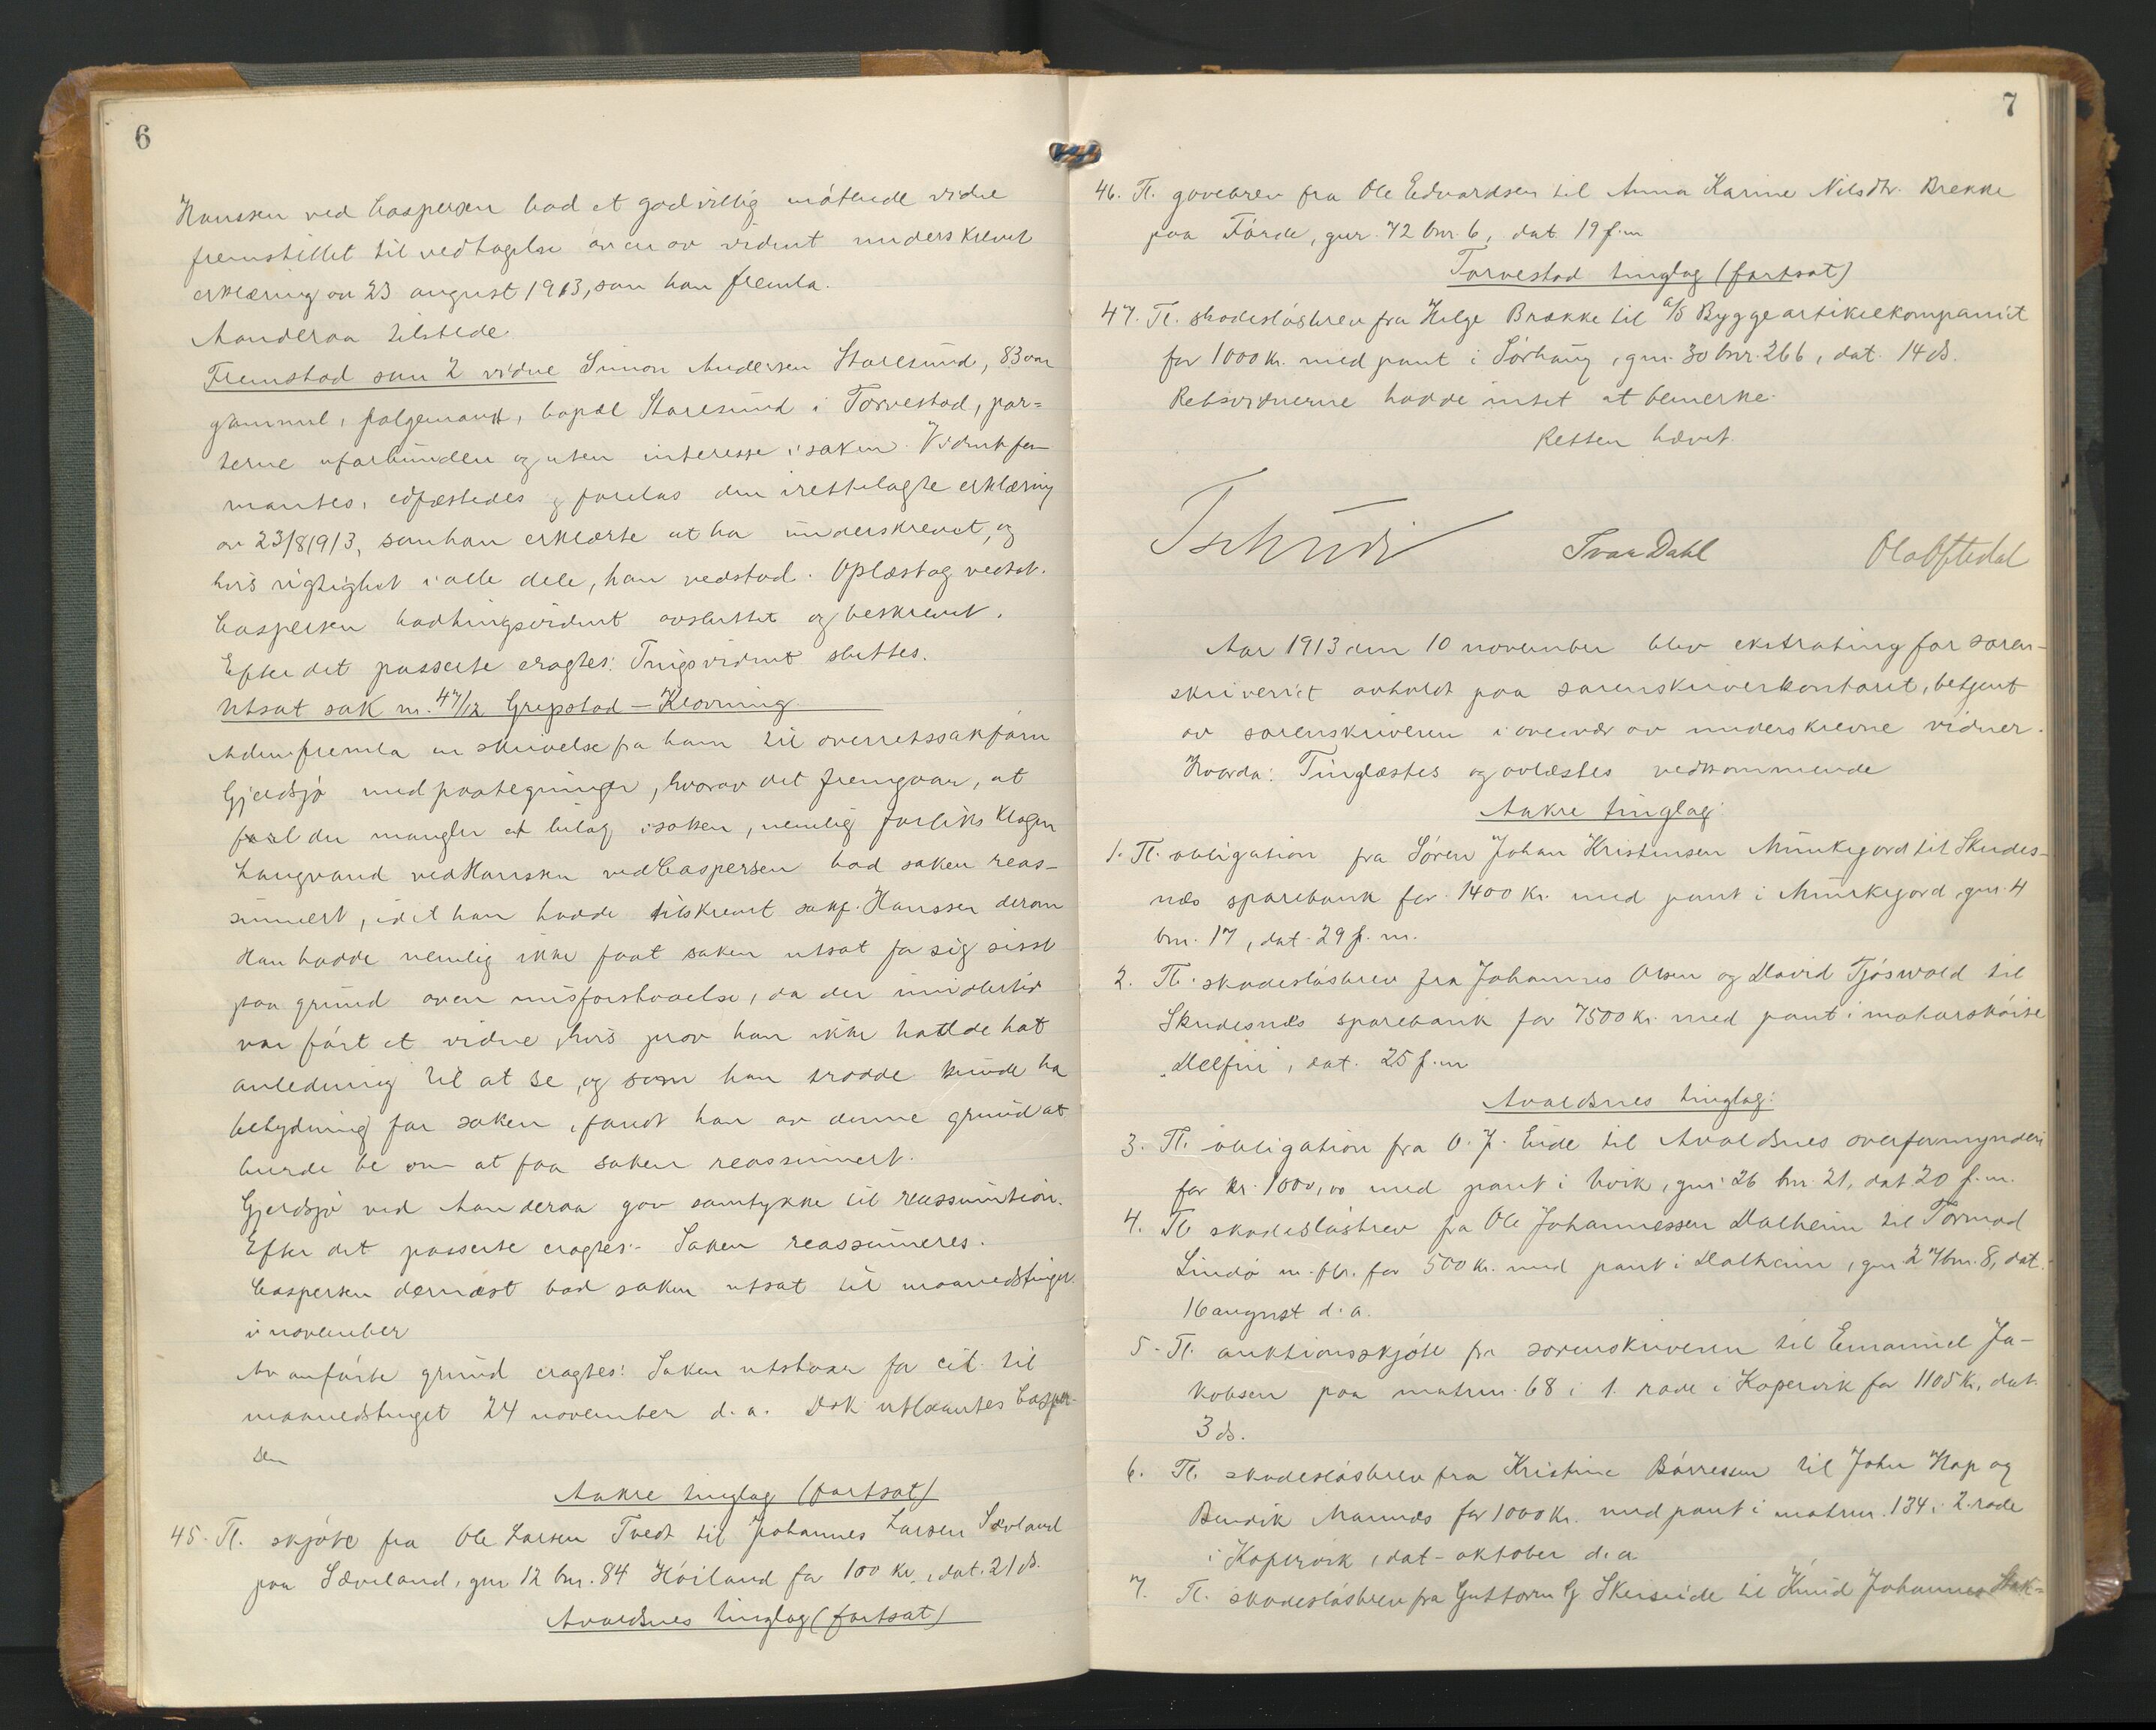 6
Hanssen ved Caspersen bad et godvillig møtende vidne
fremstillet til vedtagelse av en av vidnet underskrevet
erklæring av 23 august 1913, som han fremla.
Aanderaa tilstede
Fremstod som 2 vidne Simon Andersen Staresund, 83 aar
gammel, folgemand, bopæl Staresund i Torvestad, par=
terne uforbunden og uten interesse i saken. Vidnet for-
mantes, edfæstedes og forelas den irettelagte erklæring
av 23/8 1913, som han erklærte at ha underskrevet, og
hvis rigtighet i alle dele, han vedstod. Oplæst og vedtat.
Caspersen bad tingsvidnet avsluttet og beskrevet.
Efter det passerte eragtes: Tingsvidnet sluttes.
Utsat sak nr. 47/12 Grepstad – Klovning
Adm. fremla en skrivelse fra ham til overretssakfører
Gjerdsjø med paategninger, hvorav det fremgaar, at
der mangler et bilag i saken, nemlig forliksklagen
Langvand ved Hanssen ved Caspersen bad saken reas-
sumert, idet han hadde tilskrevet sakf. Hanssen derom
Han hadde nemlig ikke faat saken utsat for sig sisst
paa grund av en misforstaaelse, da der imidlertid
var ført et vidne, hvis prov han ikke hadde hat
anledning til at se, og som han trodde kunde ha
betydning for saken, fandt han av denne grund at
burde be om at faa saken reassumert.
Gjerdsjø ved Aanderaa gav samtykke til reassumtion.
Efter det passerte eragtes: Saken reassumeres.
Caspersen dernæst bad saken utsat til maanedstinget
i november
Av anførte grund eragtes: Saken utstaar for cit. til
maanedstinget 24 november d. a. Dok utlaantes Casper-
sen
Aakre tinglag (fortsat)
45. Tl. skjøte fra Ole Larsen Tvedt til Johannes Larsen Sævland
paa Sæveland, gnr 12 bnr. 84 Høiland for 100 kr., dat. 21 ds.
Avaldsnes tinglag (fortsat)
7
46. Tl. gavebrev fra Ole Edvardsen til Anna Karine Nilsdtr. Brekke
paa Førde, gnr. 72 bnr. 6, dat. 19 f.m
Torvestad tinglag (fortsat)
47. Tl. skadesløsbrev fra Helge Brække til A/S Byggeartikelkompaniet
for 1000 kr. med pant i Sørhaug, gnr. 30 bnr. 266, dat. 14 ds.
Retsvidnerne hadde intet at bemerke.
Retten hævet.
Tschudi Ivar Dahl Ola Oftedal
Aar 1913 den 10 november blev ekstrating for soren-
skriveriet avholdt paa sorenskriverkontoret, betjent
av sorenskriveren i overvær av underskrevne vidner.
Hvorda: Tinglæstes og avlæstes vedkommende
Aakre tinglag:
1. Tl. obligation fra Søren Johan Kristensen Munkejord til Skudes-
næs sparebank for 1400 kr. med pant i Munkejord gnr. 4
bnr. 17, dat. 29 f. m.
2. Tl. skadesløsbrev fra Johannes Olsen og David Tjøswold til
Skudesnæs sparebank for 7500 kr. med pant i motorskøite
„Delfin", dat. 25 f.m
Avaldsnes tinglag:
3. Tl. obligation fra O. J. Eide til Avaldsnes overformynderi
for kr. 1000,00 med pant i Hvik, gnr. 26 bnr. 21, dat 20 f.m.
4. Tl skadesløsbrev fra Ole Johannessen Dalheim til Tormod
Lindø m. flr. for 500 kr. med pant i Dalheim, gnr 27 bnr. 8, dat.
16 august d. a.
5. Tl. auktionsskjøte fra sorenskriveren til Emanuel Ja-
kobsen paa matrnr. 68 i 1. rode i Kopervik for 1105 kr, dat.
3 ds.
6. Tl. skadesløsbrev fra Kristine Børresen til John Hap og
Bendik Mannes for 1000 kr. med pant i matrnr. 134 i 2. rode
i Kopervik, dat – oktober d. a
7. Tl. skadesløsbrev fra Guttorm G Skeiseide til Knud Johannes